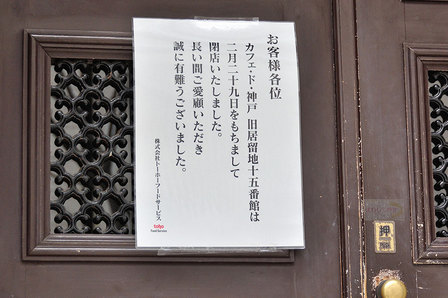 お客様各位
カフェ・ド・神戸 旧居留地十五番館は
二月二十九日をもちまして
閉店いたしました。
長い間ご愛顧いただき
誠に有難うございました。
株式会社トーホーフードサービス
toho
Food Service
押